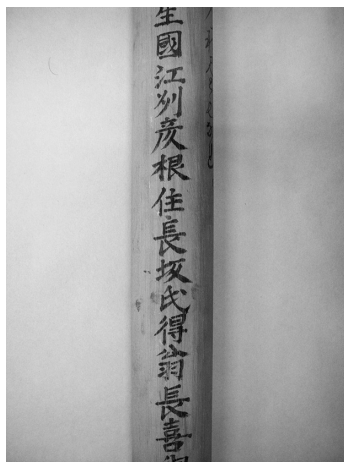 生國江州彦根住長坂氏得翁長喜